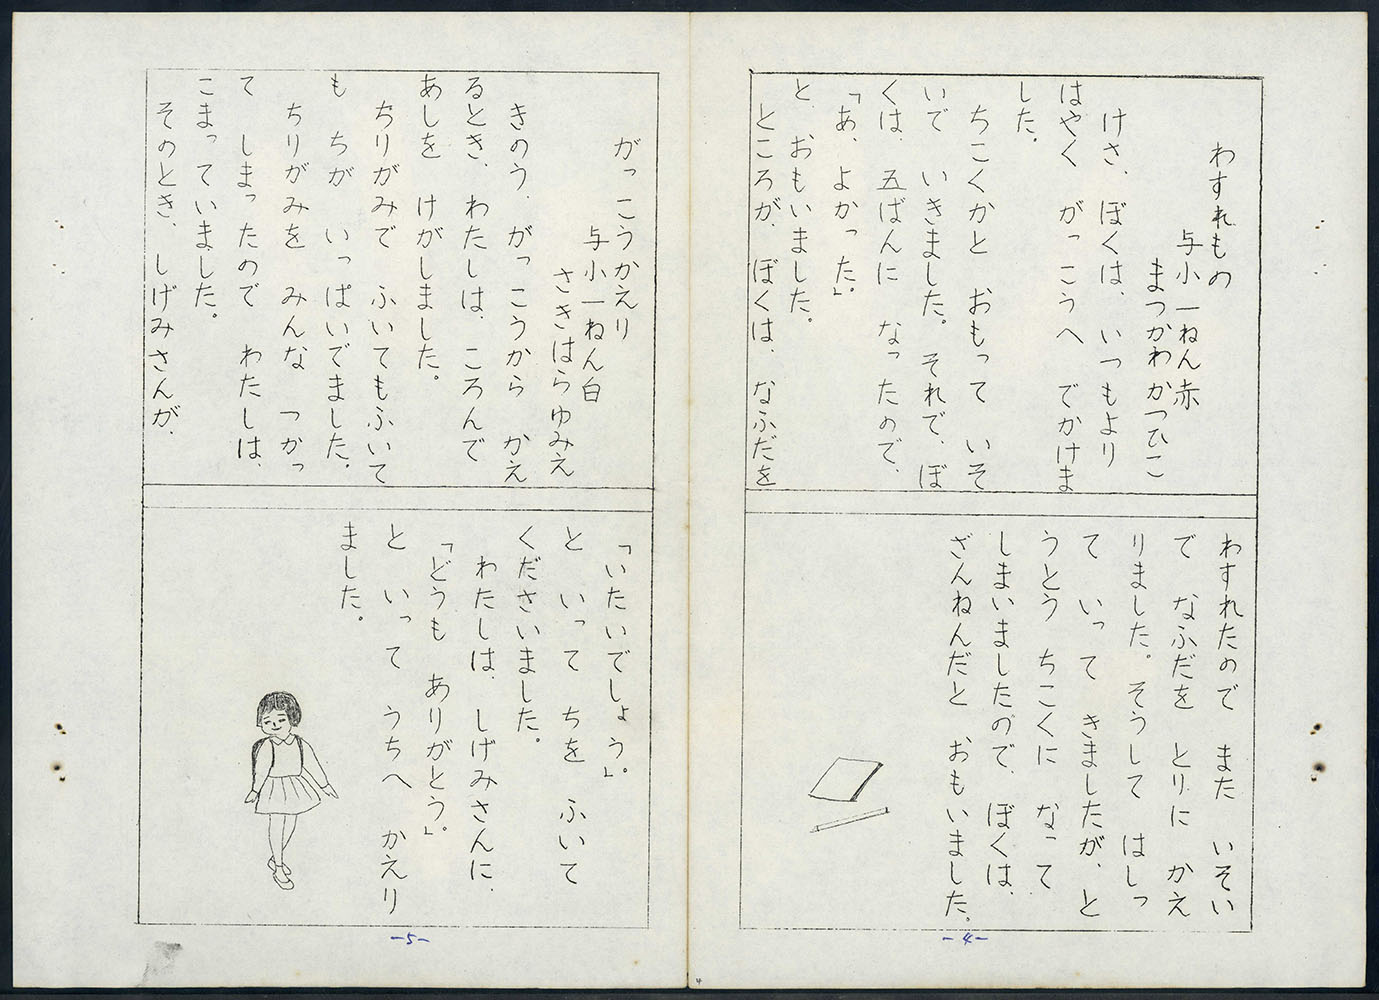 わすれもの
与小一ねん赤
まつかわかつひこ
けさ、ぼくは、いつもより
はやく がっこうへ でかけま
した。
ちこくかと おもって いそ
いで いきました。それで、ぼ
くは、五ばんに なったので、
「あ、よかった」。
と、おもいました。
ところが、ぼくは、なふだを
わすれたので また いそい
で なふだを とりに かえ
りました。そうして はしっ
て いって きましたが、と
うとう ちこくに なって
しまいましたので、ぼくは、
ざんねんだと おもいました。
-4-
がっこうかえり
与小一ねん白
さきはらゆみえ
きのう、がっこうから かえ
るとき、わたしは、ころんで
あしを けがしました。
ちりがみで ふいてもふいて
も ちが いっぱいでました。
ちりがみを みんな つかっ
て しまったので わたしは、
こまっていました。
そのとき、しげみさんが、
「いたいでしょう」。
と いって ちを ふいて
くださいました。
わたしは、しげみさんに、
「どうも ありがとう」。
と いって うちへ かえり
ました。
-5-
4